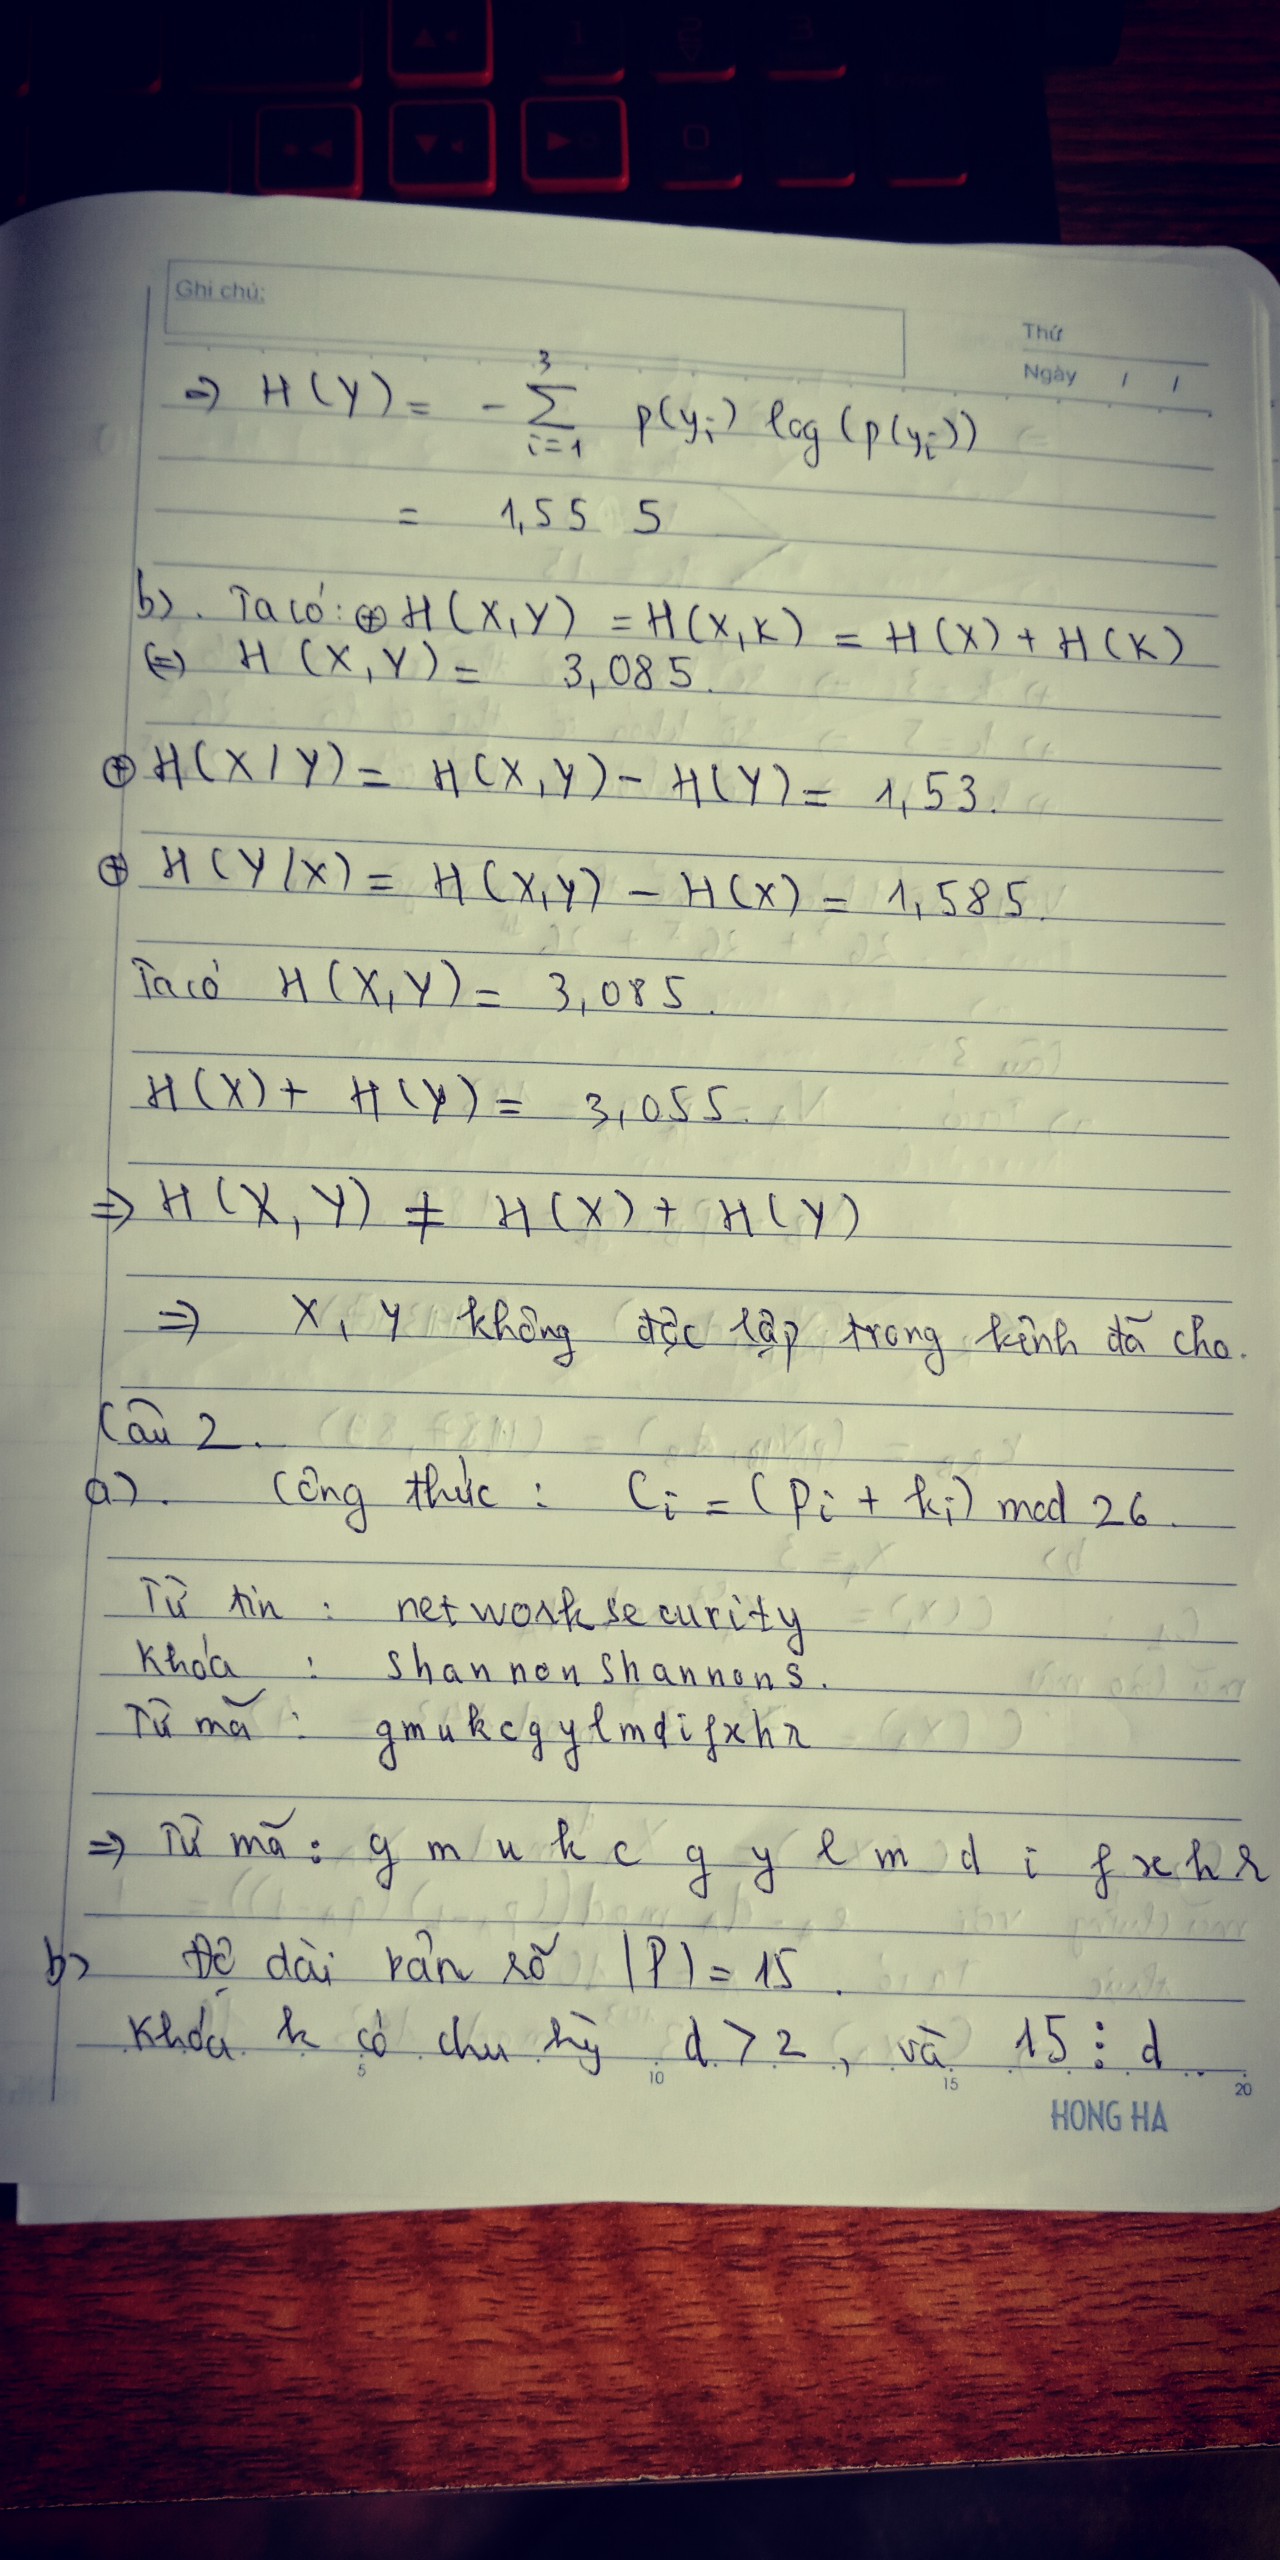 Ghi chú:
Thứ
Ngày / /
=> H(Y) = - 3∑i=1 p(yi) log(p(yi))
= 1,55 5
b). Ta có: ⊕ H(X,Y) = H(X,K) = H(X) + H(K)
(=) H(X,Y) = 3,085.
⊕ H(X/Y) = H(X,Y) - H(Y) = 1,53.
⊕ H(Y/X) = H(X,Y) - H(X) = 1,585.
Ta có H(X,Y) = 3,085.
H(X) + H(Y) = 3,055.
=> H(X,Y) ≠ H(X) + H(Y)
=> X, Y không độc lập trong kênh đã cho.
Câu 2.
a). Công thức : Ci = (pi + ki) mod 26.
Từ tin : networksecurity
Khóa : shannonshannons.
Từ mã : gmukcgylmdifxhr
=> Từ mã : g m u k c g y l m d i f x h r
b) Độ dài bản rõ |P| = 15.
Khóa k có chu kỳ d > 2, và 15 ⋮ d
5 10 15 20
HONG HA